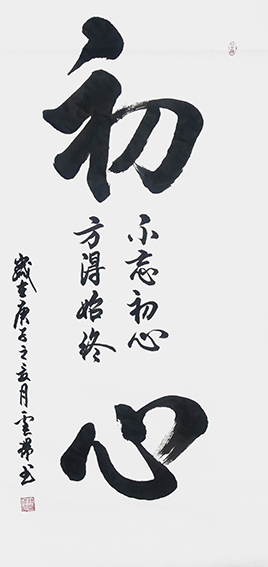 初心
不忘初心
方得始终
岁在庚子之夏月云
书